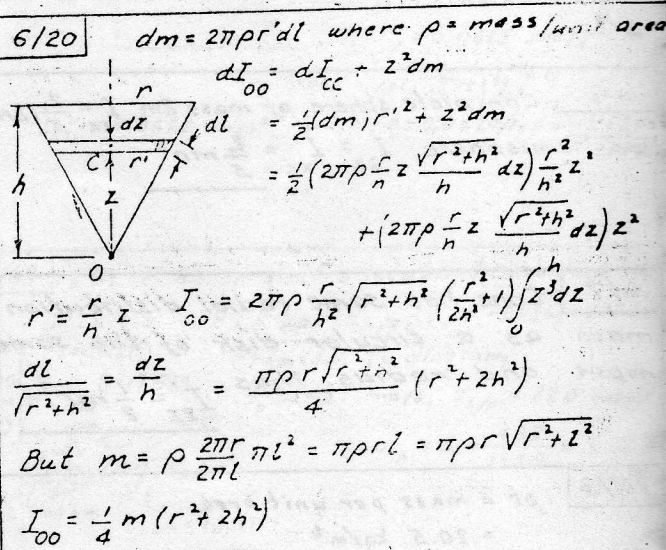 6/20
dm = 2πρr'dl where ρ = mass/unit area
dI_OO = dI_CC + z²dm
= ½(dm)r'² + z²dm
= ½(2πρ r/h z √(r²+h²)/h dz) r²/h² z²
+ (2πρ r/h z √(r²+h²)/h dz) z²
r
dz
dl
C
r'
h
z
O
r' = r/h z
I_OO = 2πρ r/h² √(r²+h²) (r²/2h² + 1) ∫₀ʰ z³dz
dl/√(r²+h²) = dz/h
= πρr√(r²+h²)/4 (r²+2h²)
But m = ρ 2πr/2πl πl² = πρrl = πρr√(r²+l²)
I_OO = ¼ m (r²+2h²)